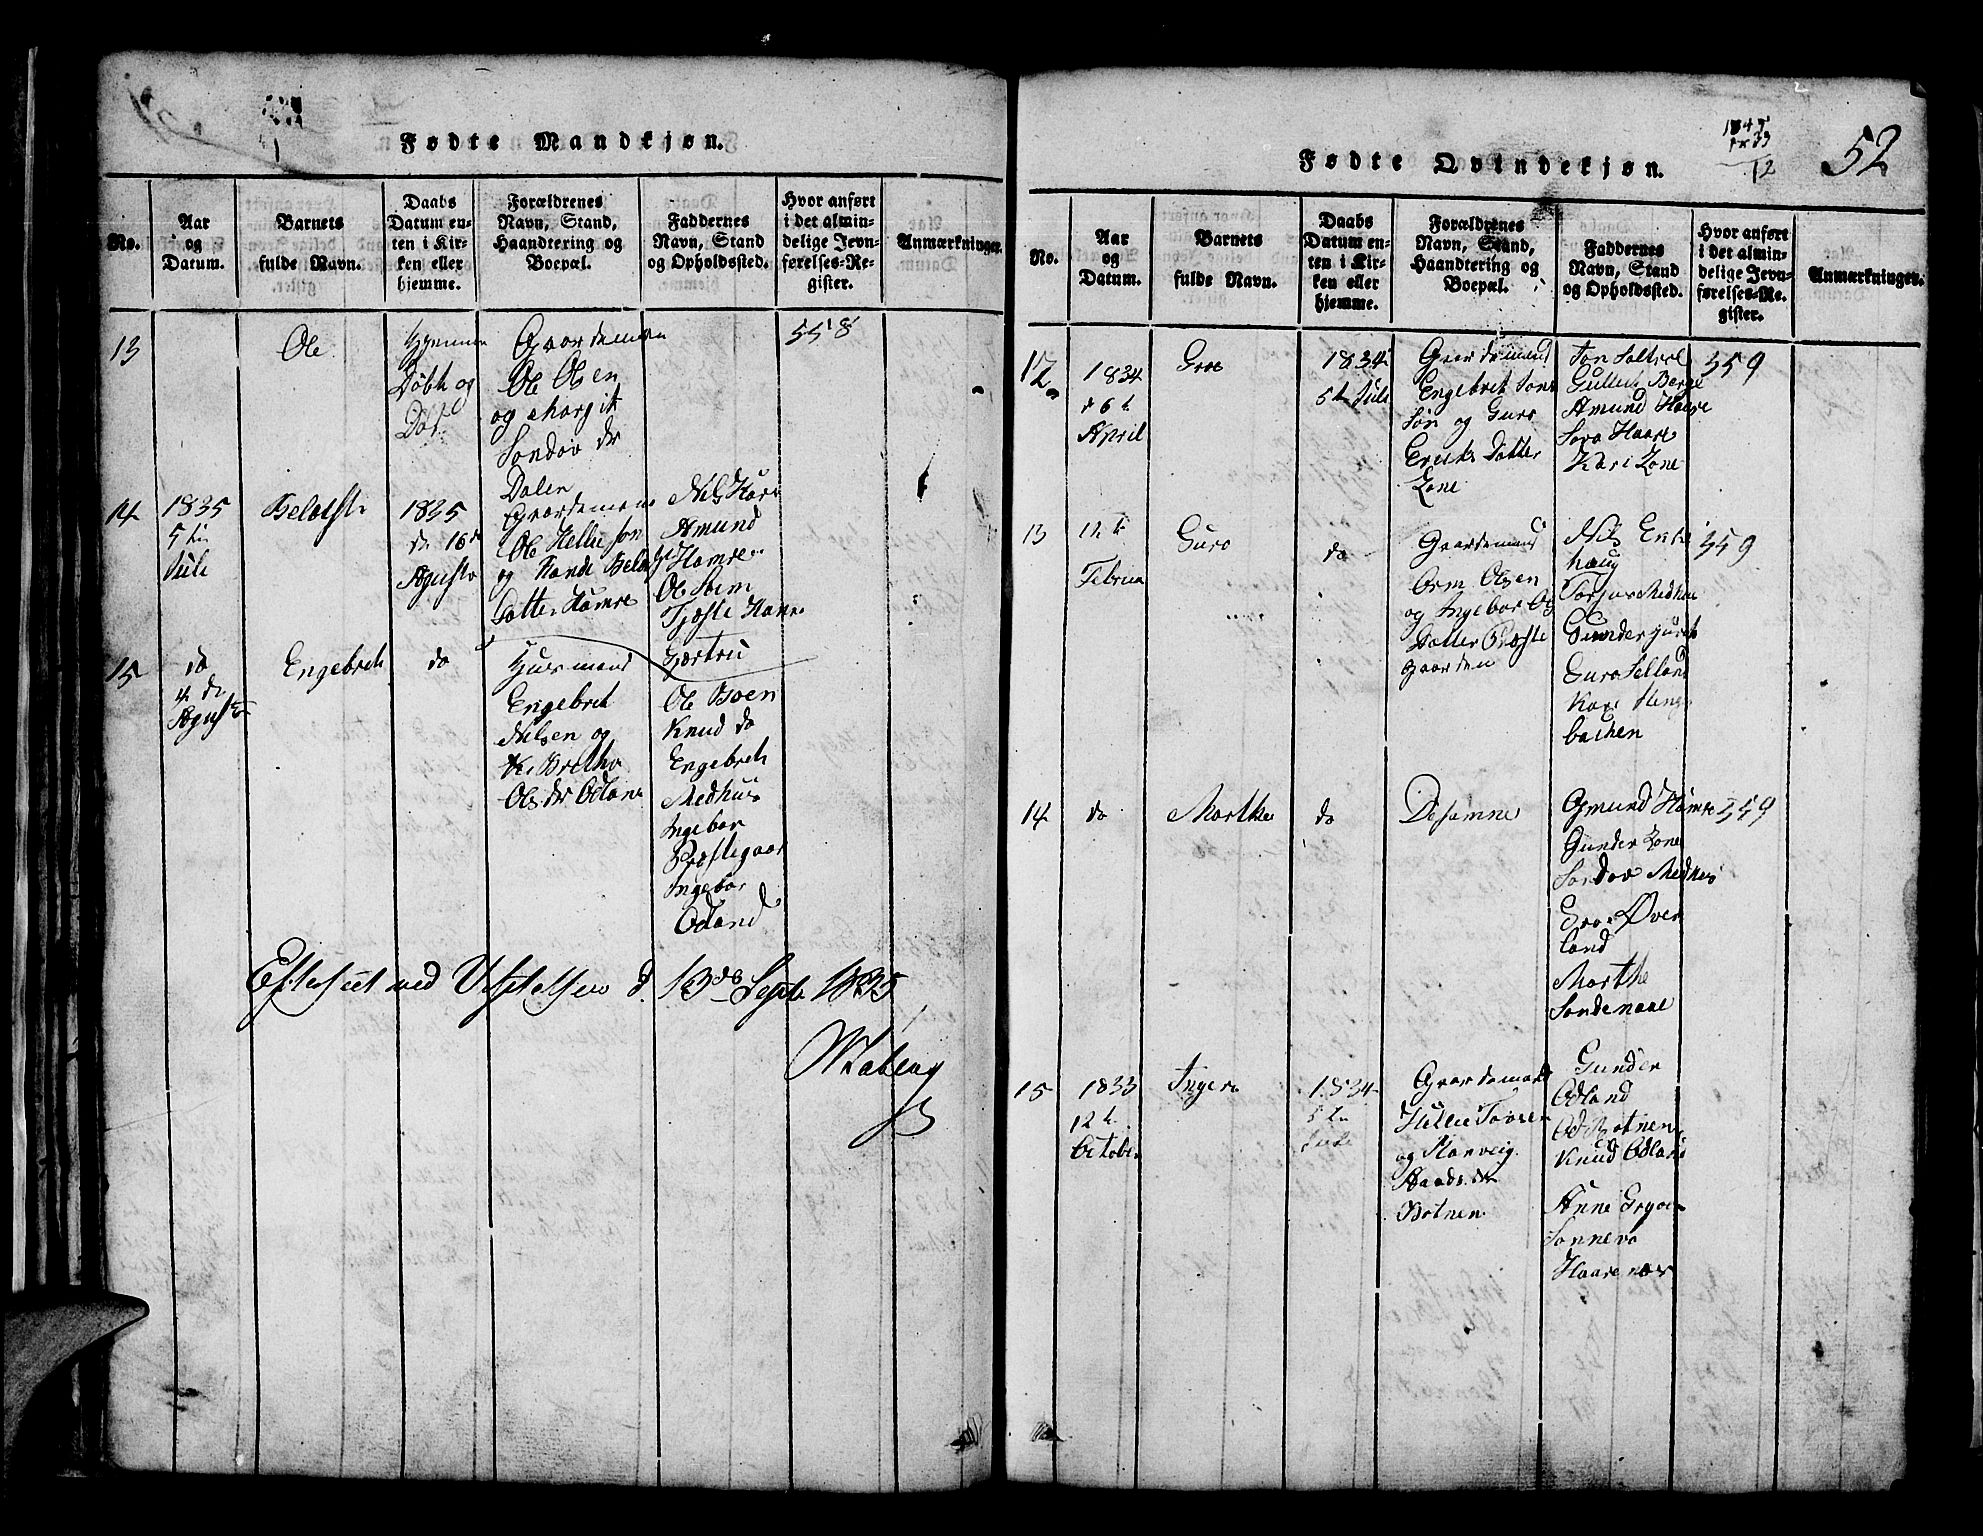 Fødte Mandkjøn.
No.
Aar
og
Datum.
Barnets
fulde Navn.
Daabs
Datum en-
ten i Kir-
ken eller
hjemme.
Forældrenes
Navn, Stand,
Haandtering og
Boepæl.
Faddernes
Navn, Stand
og Opholdssted.
Hvor anført
i det almin-
delige Jevn-
førelses-Re-
gister.
Anmærkninger.
13
Ole
Hjemme
Døbt og
Død
Gaardemann
Ole Olsen
og Margit
Sondov dr
Dalen
558
14
1835
5te
Juli
1835
de 16de
Agusto
Gaardemann
Ole Hellie son
og Rande
Datter Hamre
Nils Hare
Amund
Hamre
Ole
Hamre
Gertru
15
do
4 de
Agusto
Engebret
do
Huusmand
Engebret
Nilsen og
Ols dr Odland
Ole Boen
Knud do
Engebret
Medhus
Ingebor
Præstegaar
Ingebor
Odland
Efterseet ved Visitatsen d. 13de Septr. 1835
Fødte Qvindekjøn.
1845
1833
12
52
No.
Aar
og
Datum.
Barnets
fulde Navn.
Daabs
Datum en-
ten i Kir-
ken eller
hjemme.
Forældrenes
Navn, Stand,
Haandtering og
Boepæl.
Faddernes
Navn, Stand
og Opholdssted.
Hvor anført
i det almin-
delige Jevn-
førelses-Re-
gister.
Anmærkninger.
12
1834
d 6t
April
Groe
1834
5te Juli
Gaardemand
Engebret Jons
Søn og Guro
Eriks Datter
Lone
Jon
Gullek Berge
Amund Haare
Sara Haare
Kari Lone
559
13
12t
Februa
Guro
do
Gaardemand
Orm Olsen
og Ingebor
Datter Præste
gaarden
Nils
haug
Torjus Medhus
Gunder
Guro Selland
Kari
bakken
559
14
do
Marthe
do
Desamne
Omund Hamre
Gunder Lone
Sondov Medhus
Øver
land
Marthe
Sondenaae
559
15
1833
12t
October
Inger
1834
5te
Juli
Gaardemand
Hellie Tovsen
og Ranveig
Botnen
Gunder
Odland
Od Botnen
Knud Odland
Anne
Sonneva
Haarenær